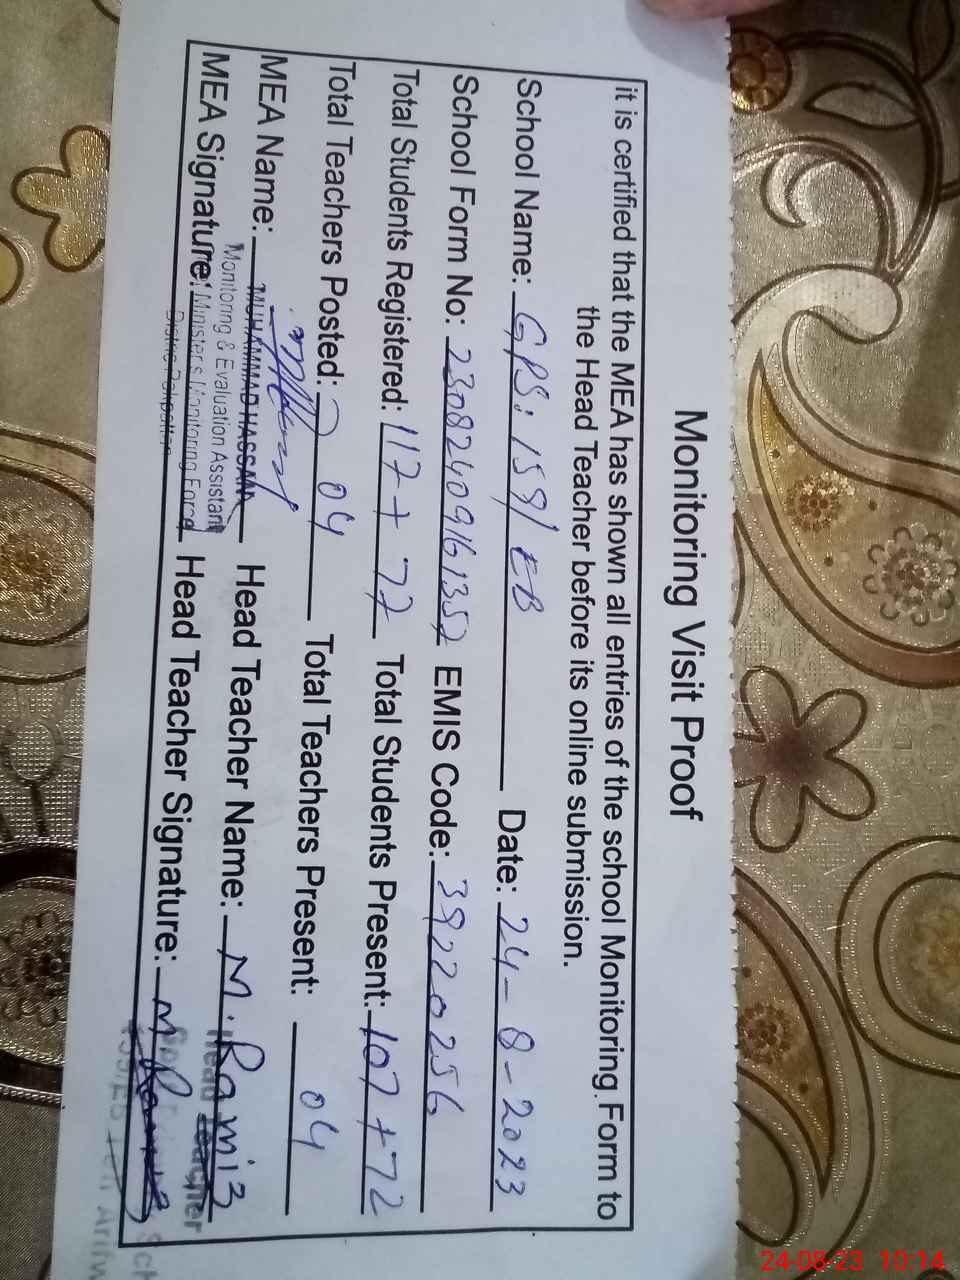 Monitoring Visit Proof
it is certified that the MEA has shown all entries of the school Monitoring Form to
the Head Teacher before its online submission.
School Name: GPS: 159/EB Date: 24-8-2023
School Form No: 23082409161352 EMIS Code: 39220256
Total Students Registered: 117+77 Total Students Present: 107+72
Total Teachers Posted: 04 Total Teachers Present: 04
MEA Name: MUHAMMAD HASSAN Head Teacher Name: M. Ramiz
Monitoring & Evaluation Assistant
Head Teacher
MEA Signature: Minister's Monitoring Force Head Teacher Signature:
24-08-23 10:14